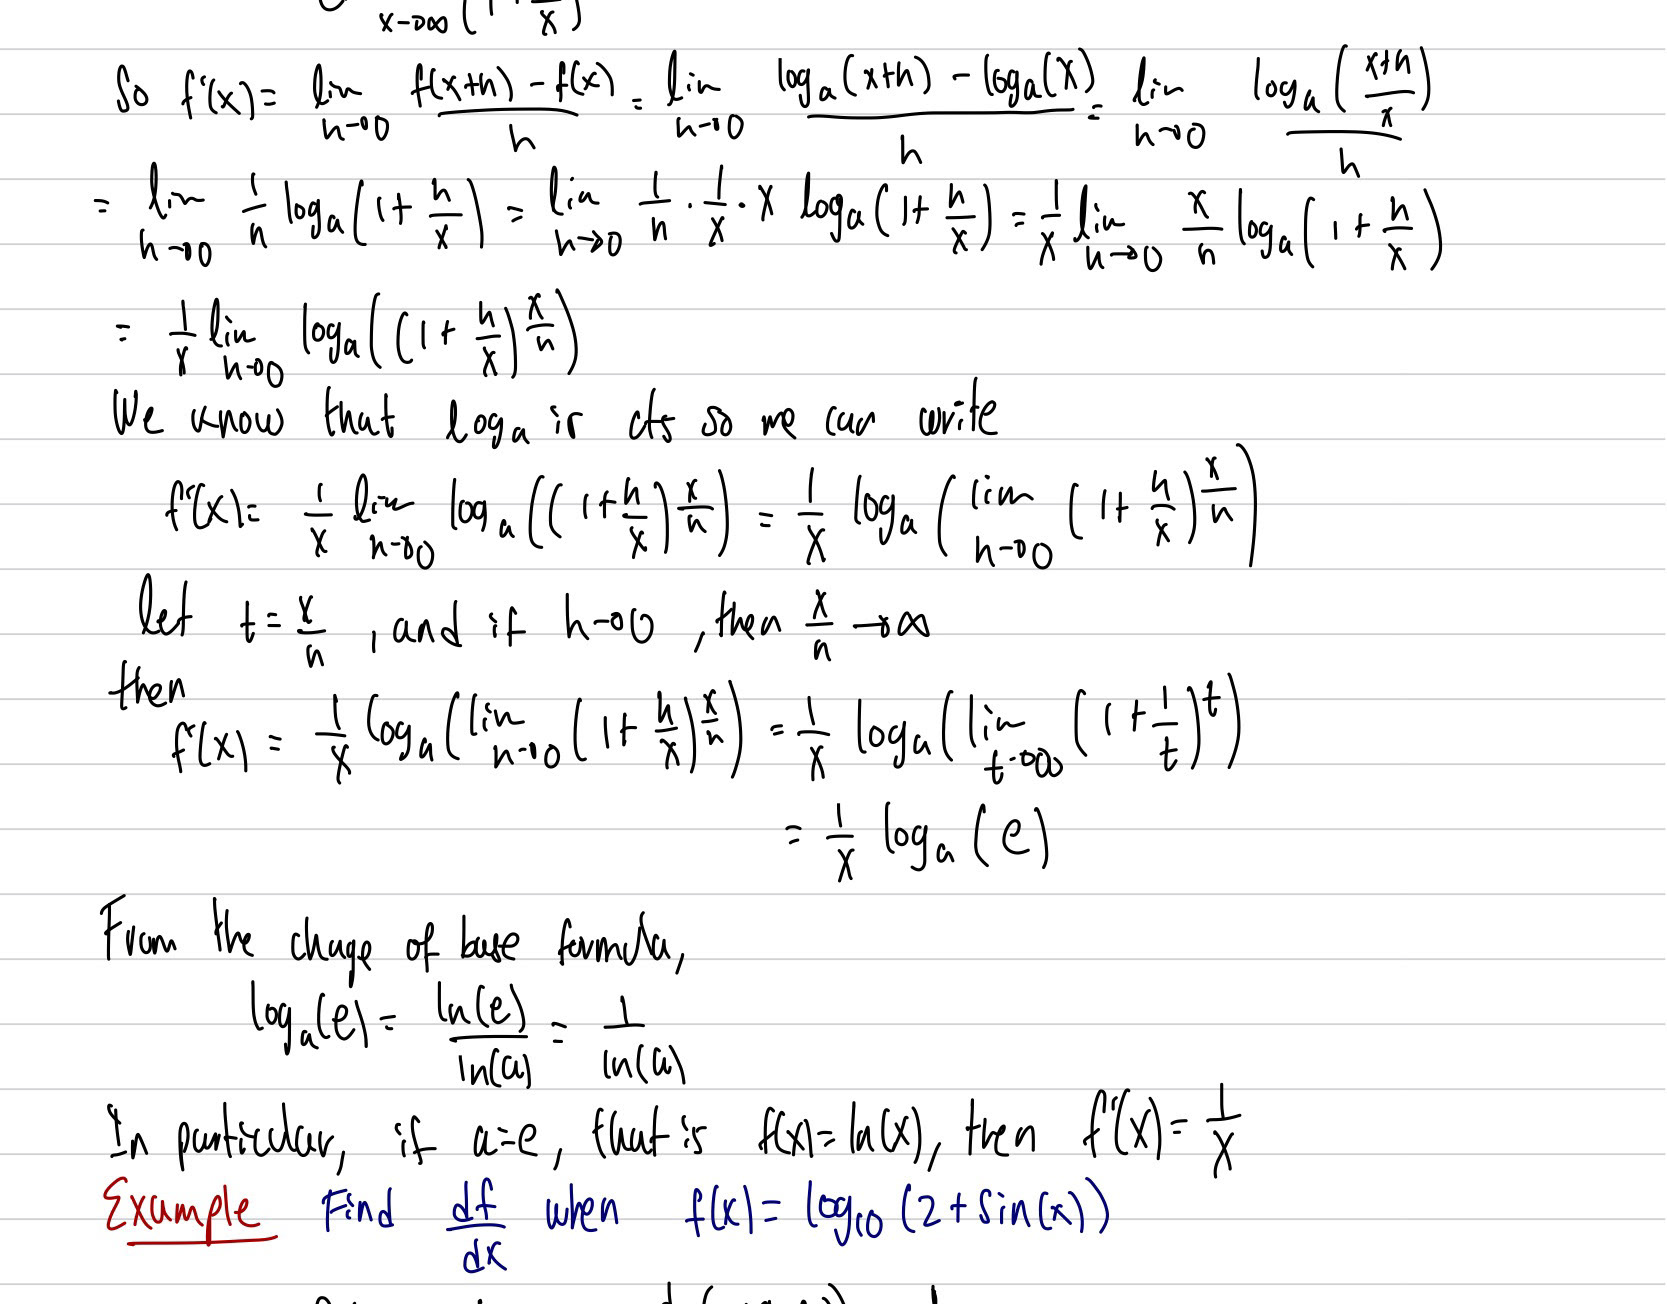 x→∞ (1+1/x)
So f'(x) = lim h→0 (f(x+h) - f(x))/h = lim h→0 (log_a(x+h) - log_a(x))/h = lim h→0 log_a((x+h)/x)/h
= lim h→0 1/h log_a(1+h/x) = lim h→0 1/h · 1/x · x log_a(1+h/x) = 1/x lim h→0 x/h log_a(1+h/x)
= 1/x lim h→0 log_a((1+h/x)^(x/h))
We know that log_a is cts so we can write
f'(x) = 1/x lim h→0 log_a((1+h/x)^(x/h)) = 1/x log_a(lim h→0 (1+h/x)^(x/h))
let t = x/h, and if h→0, then x/h →∞
then
f'(x) = 1/x log_a(lim h→0 (1+h/x)^(x/h)) = 1/x log_a(lim t→∞ (1+1/t)^t)
= 1/x log_a(e)
From the change of base formula,
log_a(e) = ln(e)/ln(a) = 1/ln(a)
In particular, if a=e, that is f(x)=ln(x), then f'(x) = 1/x
Example Find df/dx when f(x) = log_10 (2+sin(x))